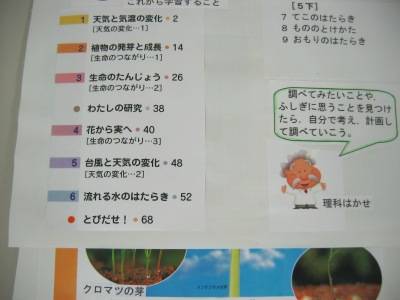 これから学習すること
1 天気と気温の変化 • 2
[天気の変化…1]
2 植物の発芽と成長 • 14
[生命のつながり…1]
3 生命のたんじょう • 26
[生命のつながり…2]
• わたしの研究 • 38
4 花から実へ • 40
[生命のつながり…3]
5 台風と天気の変化 • 48
[天気の変化…2]
6 流れる水のはたらき • 52
• とびだせ! • 68
[5下]
7 てこのはたらき
8 もののとけかた
9 おもりのはたらき
調べてみたいことや、
ふしぎに思うことを見つけ
たら、自分で考え、計画し
て調べていこう。
理科はかせ
クロマツの芽